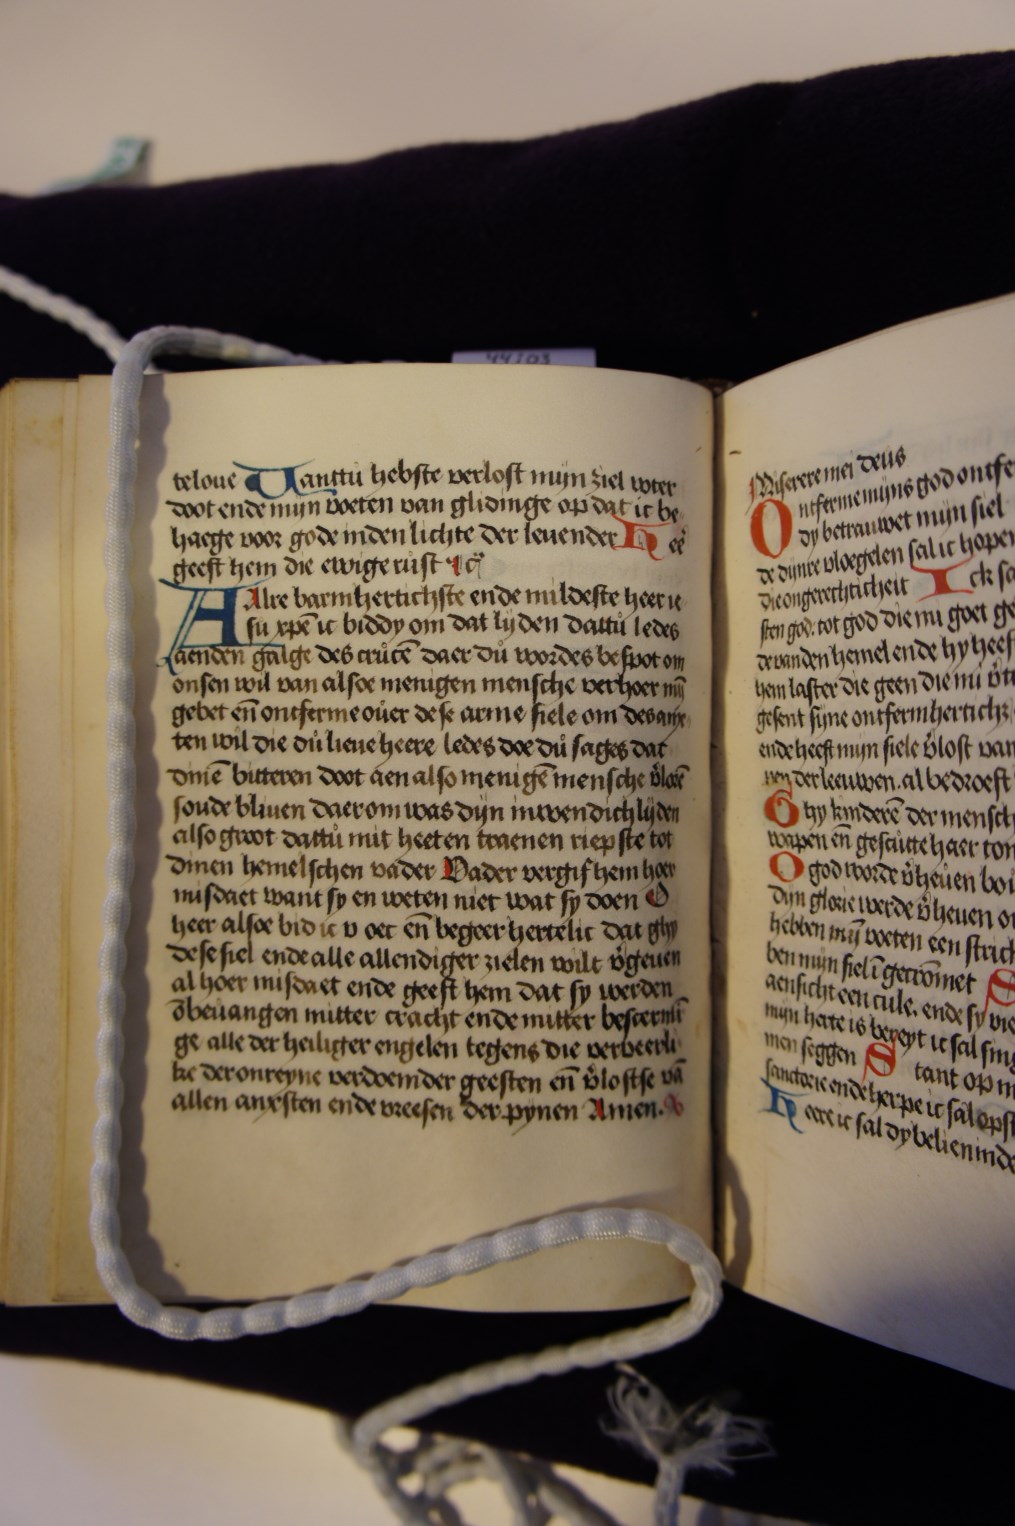 44J03
teloue Wanttu hebste verlost mijn ziel vter
doot ende mijn voeten van glidinge op dat ic be
haege voor gode inden lichte der leuender Heē
geeft hem die ewige rust
Alre barmhertichste ende mildeste heer ie
su xpē ic biddy om dat lijden dattu ledes
aenden galge des crucē daer du wordes bespot om
onsen wil van alsoe menigen mensche verhoer mijn
gebet en̄ ontferme ouer dese arme siele om des anx
ten wil die du lieue heere ledes doe du sages dat
dinē bitteren doot aen also menigē mensche v̄lorē
soude bliuen daerom was dijn inwendich lijden
also groot dattu mit heeten traenen riepste tot
dinen hemelschen vader Vader vergif hem hoer
misdaet want sy en weten niet wat sy doen O
heer alsoe bid ic v oec en̄ begeer hertelic dat ghy
dese siel ende alle allendiger zielen wilt v̄geuen
al hoer misdaet ende geeft hem dat sy werden
ōbeuangen mitter cracht ende mitter bescermī
ge alle der heiliger engelen tegens die verueerli
ke der onreyne verdoemder geesten en̄ v̄lostse vā
allen anxsten ende vreesen der pynen Amen.
Miserere mei deus
Ontferme mijns god ontfe
dy betrauwet mijn siel
de dijnre vloegelen sal ic hopen
die ongerechticheit Ick sa
sten god. tot god die mi goet ge
de vanden hemel ende hy heef
hem laster die geen die mi
gesent sijne ontfermhertich
ende heeft mijn siele v̄lost van
der leeuwen. al bedroeft
hy kinderē der mensch
wapen en̄ gescutte haer ton
O god worde v̄heuen bou
dijn glorie werde v̄heuen o
hebben mijn voeten een strick
ben mijn siel ī gecrōmet S
aensicht een cule. ende sy vie
mijn herte is bereyt ic sal sing
men seggen Stant op m
ende herpe ic sal opst
Heere ic sal dy belien inde